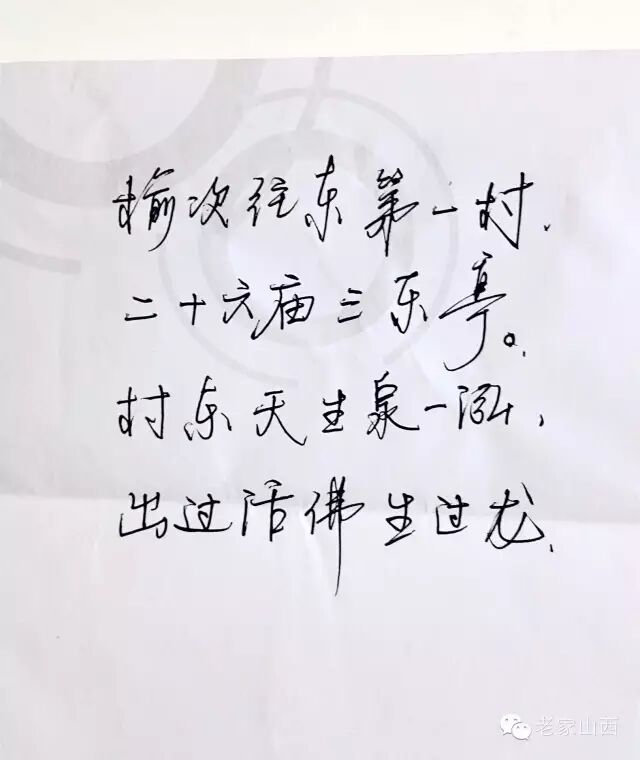 榆次往东第一村,
二十六庙三东亭。
村东天生泉一洞,
出过活佛生过龙.
老家山西